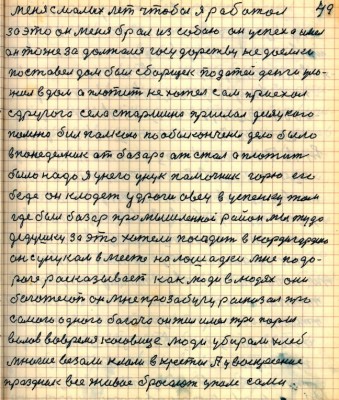 49
меня с малых лет чтобы я работал
за это он меня брал из собою он успеха имел
он тоже задолжал государству недоемки
поставел дом был сборщек податей денги уло-
жил в дом а плотит не хотел сам приехал
с другого села старшина прислал
били палкою по обыкончени дело было
в понедельник от базара отстал а плотит
было надо я у него унук памочник горю его
беде он кладет у дроги овец в успенку там
где был базар промышленной район мы туда
дедушку за это хотели посадит в кардегардию
он с унуком вместе на лошадки мне по до-
роге расказывает как люди в людях они
богатеют он мне про забичу расказал про
самого одного богача он жил имел три пары
волов вовремя косовице люди убирали хлеб
многие возали клали в крестци А у воскресение
праздник все живае бросают упали сами